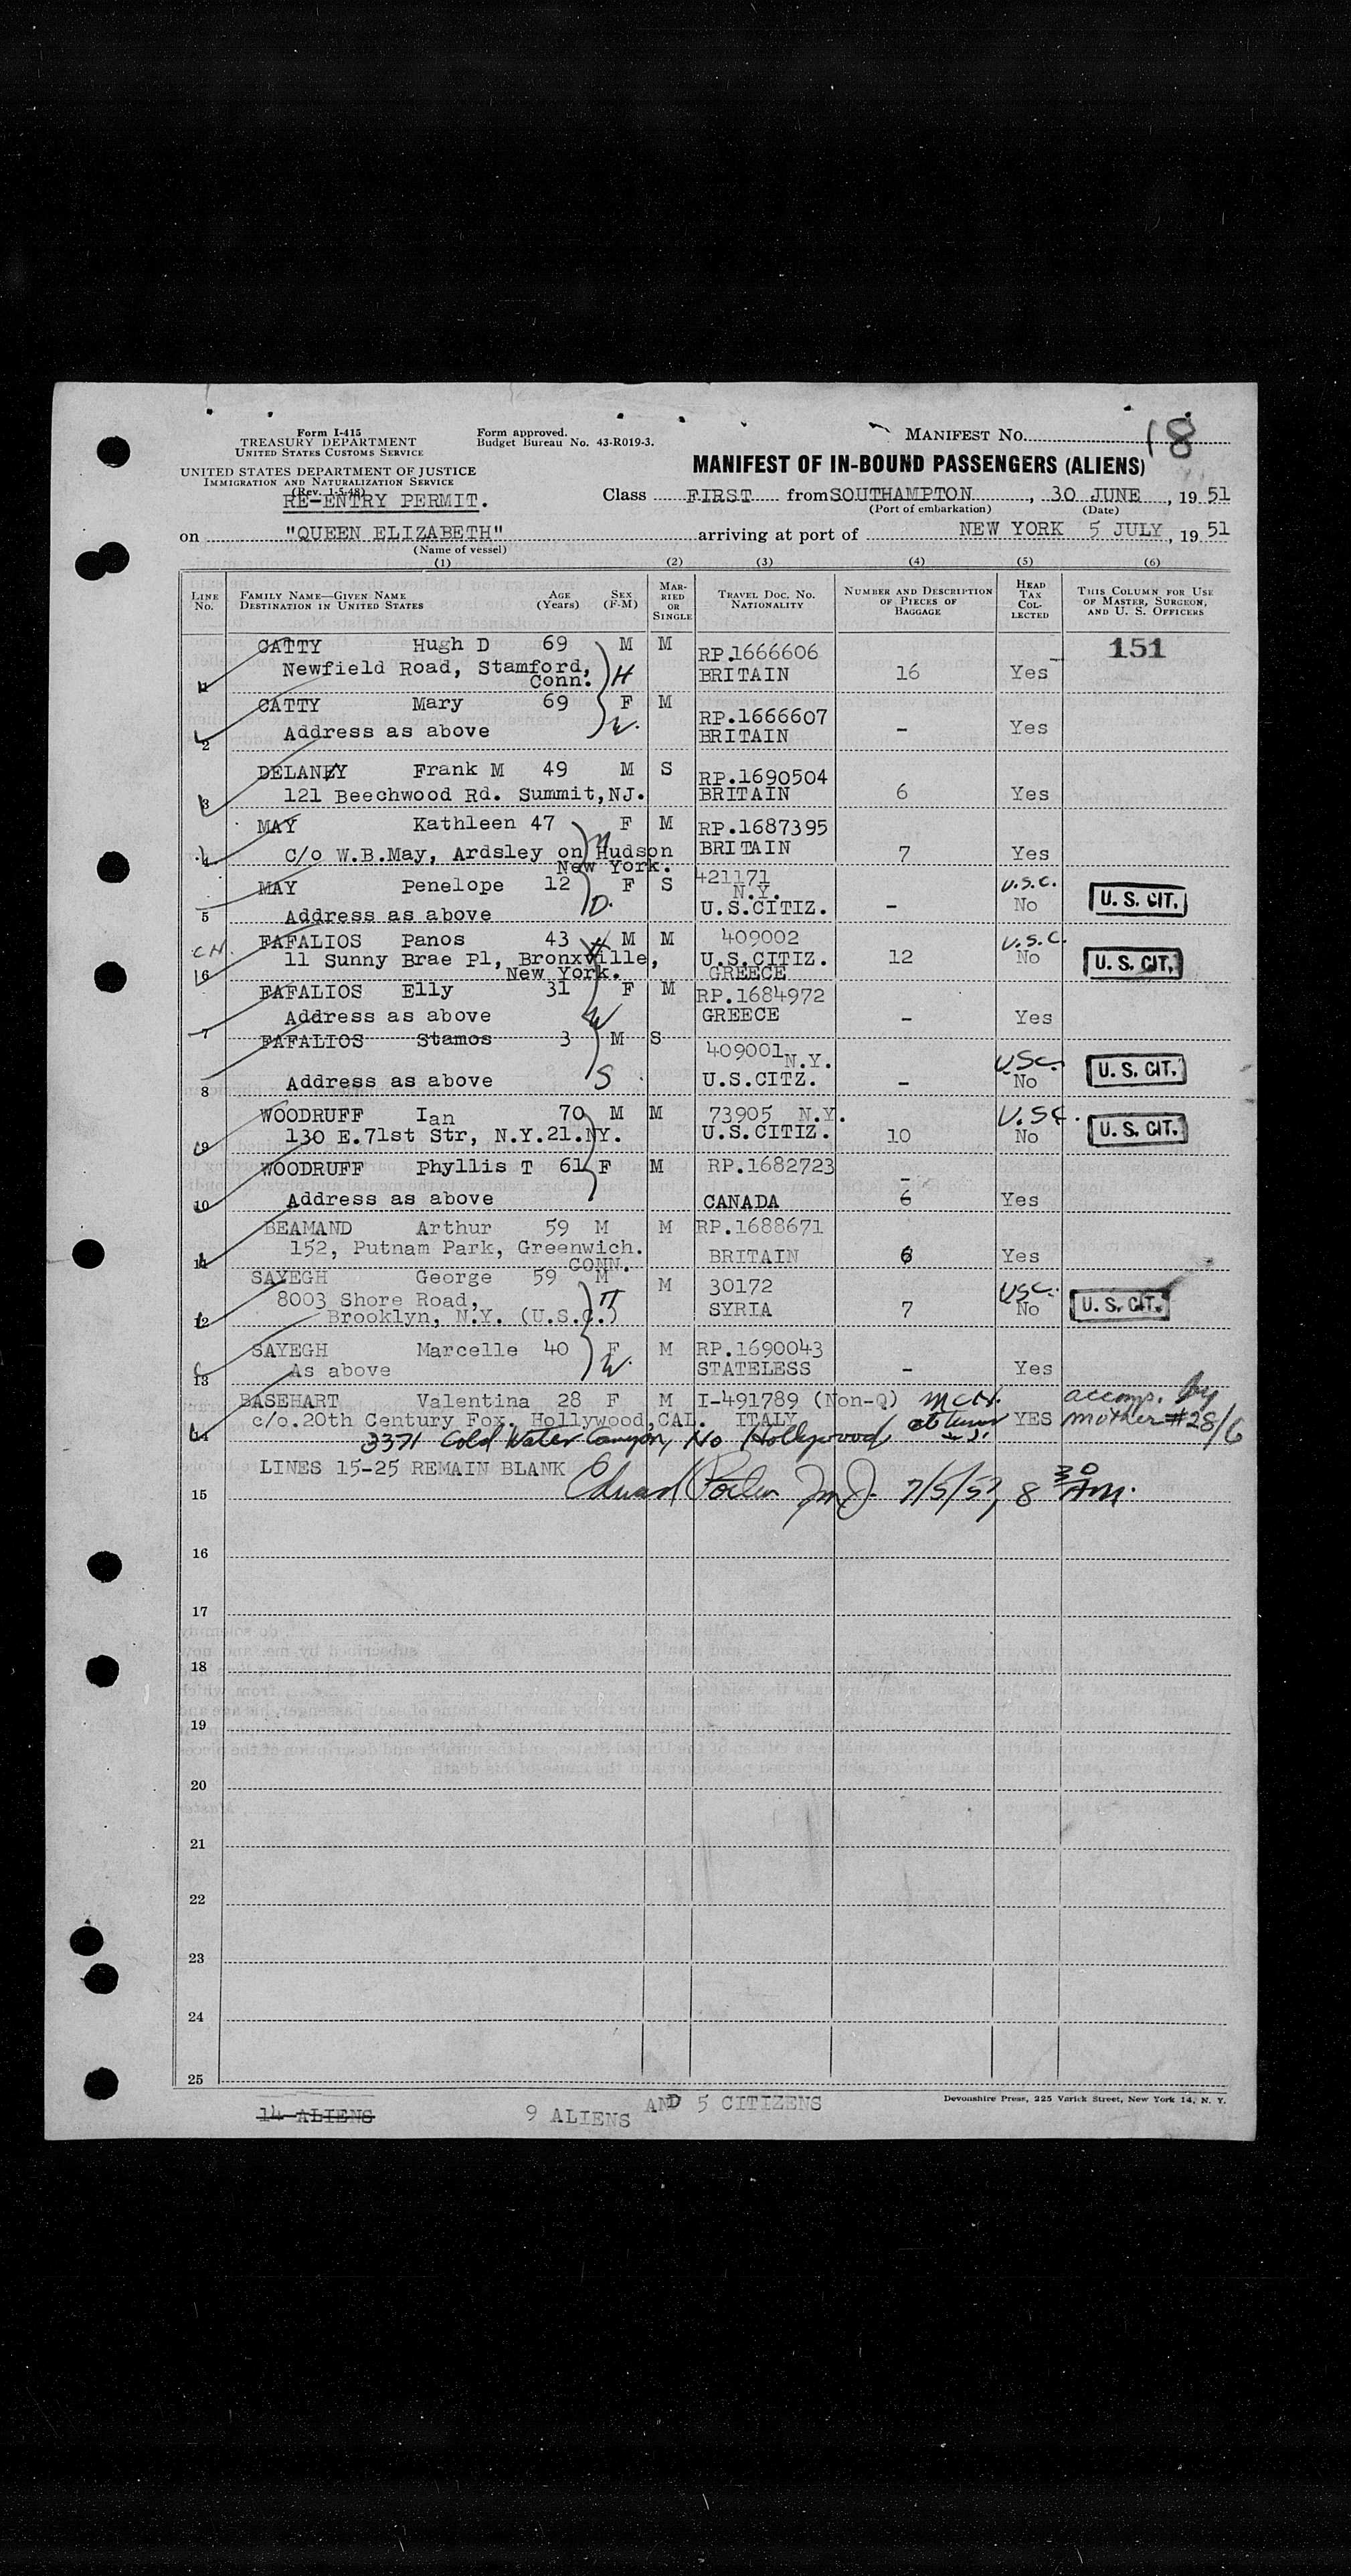 Form I-415
TREASURY DEPARTMENT
UNITED STATES CUSTOMS SERVICE
UNITED STATES DEPARTMENT OF JUSTICE
IMMIGRATION AND NATURALIZATION SERVICE
(Rev. 1-5-48)
RE-ENTRY PERMIT.
Form approved.
Budget Bureau No. 43-R019-3.
MANIFEST No. 18
MANIFEST OF IN-BOUND PASSENGERS (ALIENS)
Class FIRST from SOUTHAMPTON, 30 JUNE, 1951
(Port of embarkation) (Date)
on "QUEEN ELIZABETH" arriving at port of NEW YORK 5 JULY, 1951
(Name of vessel)
(1) (2) (3) (4) (5) (6)
LINE No. FAMILY NAME—GIVEN NAME DESTINATION IN UNITED STATES AGE (Years) SEX (F-M) MARRIED OR SINGLE TRAVEL DOC. NO. NATIONALITY NUMBER AND DESCRIPTION OF PIECES OF BAGGAGE HEAD TAX COLLECTED THIS COLUMN FOR USE OF MASTER, SURGEON, AND U. S. OFFICERS
151
CATTY Hugh D 69 M M RP.1666606
1 Newfield Road, Stamford, Conn. H BRITAIN 16 Yes
CATTY Mary 69 F M RP.1666607
2 Address as above W. BRITAIN - Yes
DELANEY Frank M 49 M S RP.1690504
3 121 Beechwood Rd. Summit, NJ. BRITAIN 6 Yes
MAY Kathleen 47 F M RP.1687395
4 c/o W.B.May, Ardsley on Hudson New York. M BRITAIN 7 Yes
MAY Penelope 12 F S 421171 N.Y. U.S.C.
5 Address as above D. U.S.CITIZ. - No U. S. CIT.
C.N. FAFALIOS Panos 43 H M M 409002 U.S.C.
6 11 Sunny Brae Pl, Bronxville, New York. U.S.CITIZ. GREECE 12 No U. S. CIT.
FAFALIOS Elly 31 F M RP.1684972
7 Address as above W GREECE - Yes
FAFALIOS Stamos 3 M S 409001 N.Y. USC.
8 Address as above S U.S.CITZ. - No U. S. CIT.
WOODRUFF Ian 70 M M 73905 N.Y. U.S.C.
9 130 E.71st Str, N.Y.21.NY. U.S.CITIZ. 10 No U. S. CIT.
WOODRUFF Phyllis T 61 F M RP.1682723 -
10 Address as above CANADA 6 Yes
BEAMAND Arthur 59 M M RP.1688671
11 152, Putnam Park, Greenwich. CONN. BRITAIN 6 Yes
SAYEGH George 59 M M 30172 USC.
12 8003 Shore Road, Brooklyn, N.Y. (U.S.C.) H SYRIA 7 No U. S. CIT.
SAYEGH Marcelle 40 F M RP.1690043
13 As above W. STATELESS - Yes
BASEHART Valentina 28 F M I-491789 (Non-Q) accomp. by
14 c/o.20th Century Fox. Hollywood, CAL. ITALY YES mother #28/6
3371 Cold Water Canyon, No Hollywood
LINES 15-25 REMAIN BLANK
15 7/5/51, 8 30 AM.
16
17
18
19
20
21
22
23
24
25
14 ALIENS 9 ALIENS AND 5 CITIZENS
Devonshire Press, 225 Varick Street, New York 14, N. Y.